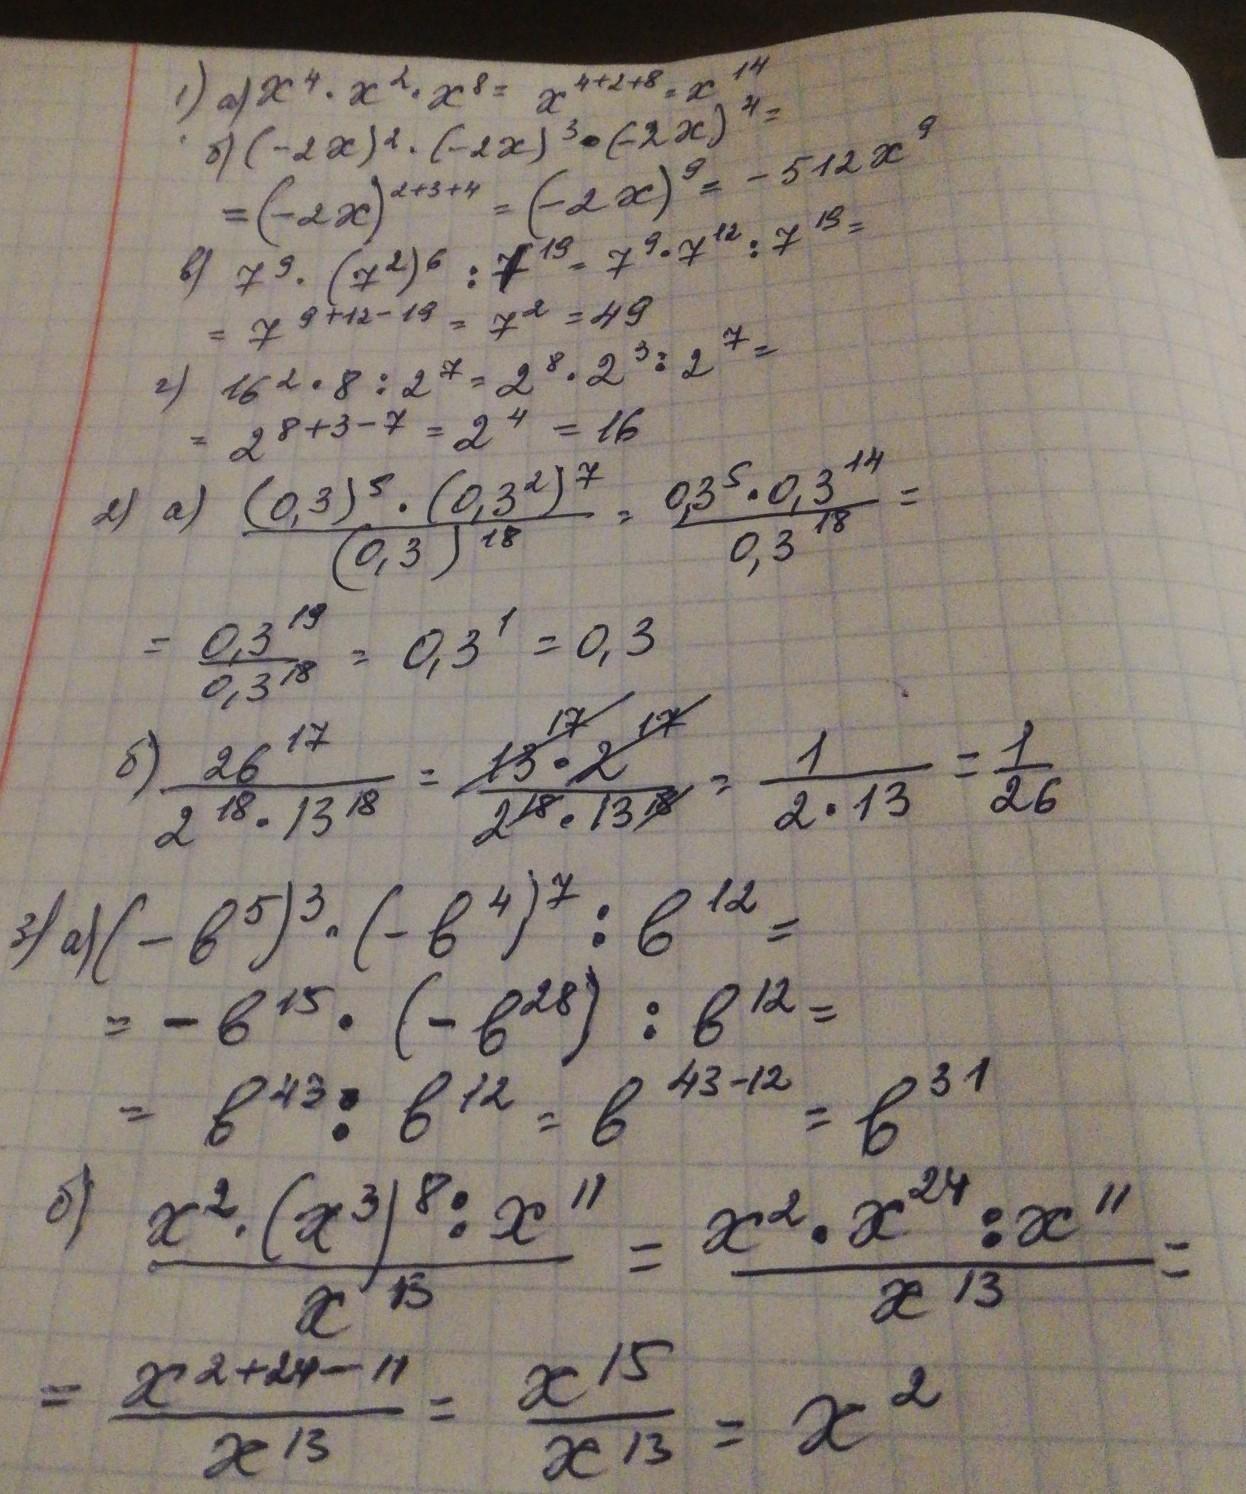 1) а) x⁴ · x² · x⁸ = x⁴⁺²⁺⁸ = x¹⁴
б) (-2x)² · (-2x)³ · (-2x)⁴ =
= (-2x)²⁺³⁺⁴ = (-2x)⁹ = -512x⁹
в) 7⁹ · (7²)⁶ : 7¹⁹ = 7⁹ · 7¹² : 7¹⁹ =
= 7⁹⁺¹²⁻¹⁹ = 7² = 49
г) 16² · 8 : 2⁷ = 2⁸ · 2³ : 2⁷ =
= 2⁸⁺³⁻⁷ = 2⁴ = 16
2) а) (0,3)⁵ · (0,3²)⁷ / (0,3)¹⁸ = 0,3⁵ · 0,3¹⁴ / 0,3¹⁸ =
= 0,3¹⁹ / 0,3¹⁸ = 0,3¹ = 0,3
б) 26¹⁷ / 2¹⁸ · 13¹⁸ = 13¹⁷ · 2¹⁷ / 2¹⁸ · 13¹⁸ = 1 / 2 · 13 = 1 / 26
3) а) (-b⁵)³ · (-b⁴)⁷ : b¹² =
= -b¹⁵ · (-b²⁸) : b¹² =
= b⁴³ : b¹² = b⁴³⁻¹² = b³¹
б) x² · (x³)⁸ : x¹¹ / x¹³ = x² · x²⁴ : x¹¹ / x¹³ =
= x²⁺²⁴⁻¹¹ / x¹³ = x¹⁵ / x¹³ = x²